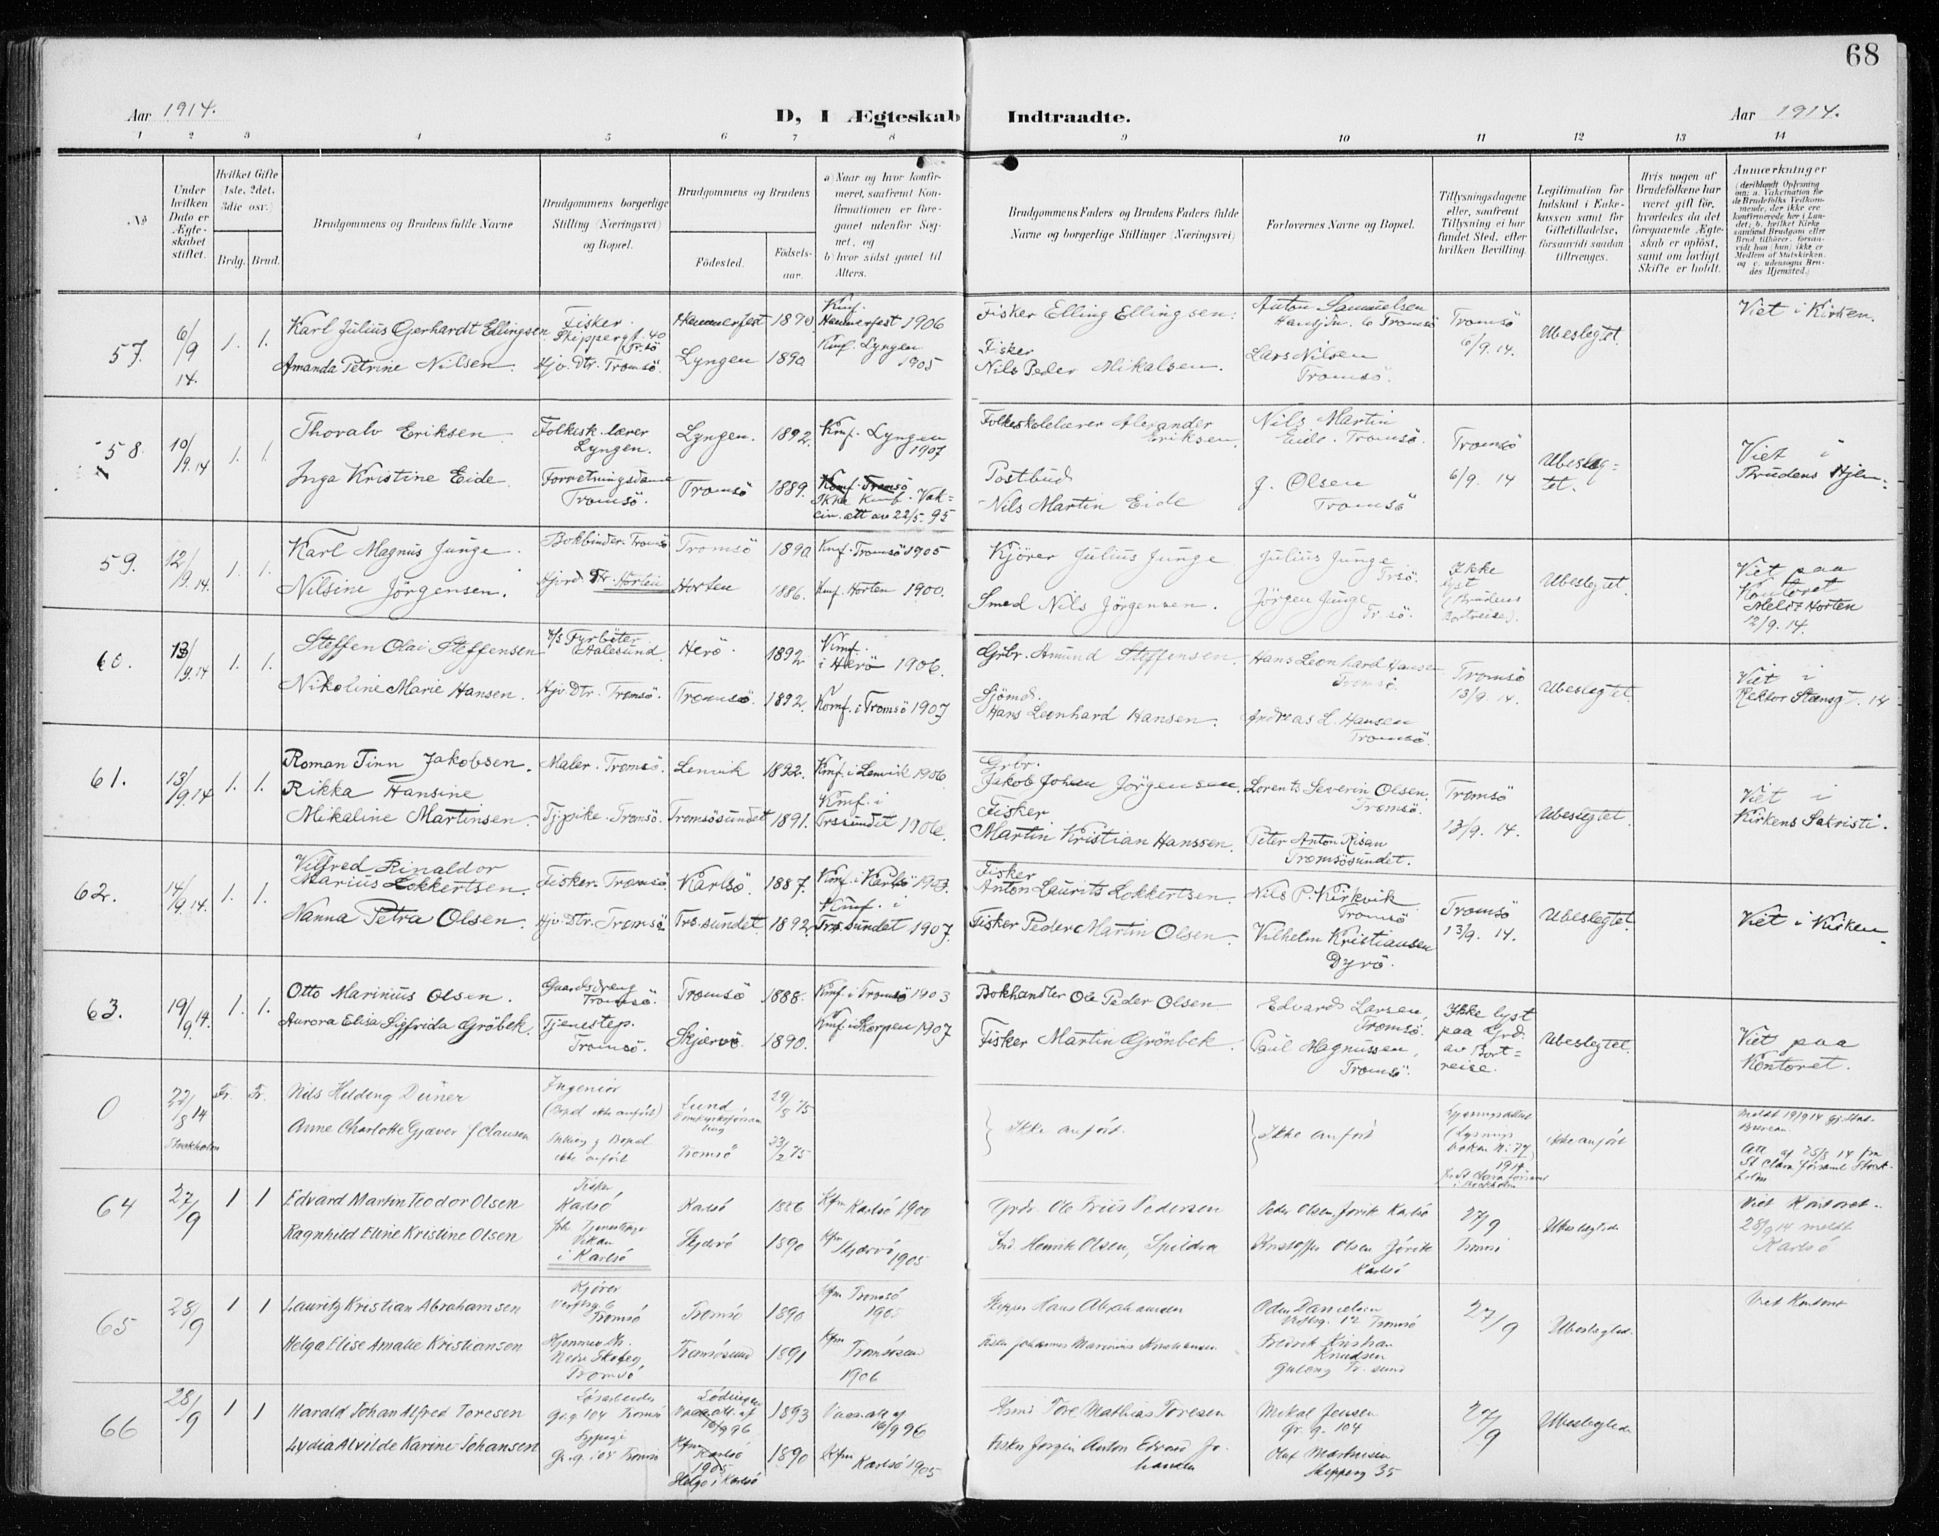 68
Aar 1914.
D, I Ægteskab Indtraadte.
Aar 1914.
1 2 3 4 5 6 7 8 9 10 11 12 13 14
№
Under hvilken Dato er Ægteskabet stiftet.
Hvilket Gifte (1ste, 2det, 3die osv.)
Brdg. Brud.
Brudgommens og Brudens fulde Navne
Brudgommens borgerlige Stilling (Næringsvei) og Bopæl.
Brudgommens og Brudens
Fødested.
Fødselsaar.
a) Naar og hvor konfirmeret, saafremt Konfirmationen er foregaaet udenfor Sognet, og
b) hvor sidst gaaet til Alters.
Brudgommens Faders og Brudens Faders fulde Navne og borgerlige Stillinger (Næringsvei)
Forlovernes Navne og Bopæl.
Tillysningsdagene eller, saafremt Tillysning ei har fundet Sted, efter hvilken Bevilling.
Legitimation for Indskud i Enkekassen samt for Giftetilladelse, forsaavidt saadan tiltrænges.
Hvis nogen af Brudefolkene har været gift før, hvorledes da det foregaaende Ægteskab er opløst, samt om lovligt Skifte er holdt.
Anmærkninger
57. 6/9 14. 1. 1.
Karl Julius Gerhardt Ellingsen Fisker. Skippergt. 40 Tr.sö Hammerfest 1890 Knf. Hammerfest 1906 Fisker Elling Ellingsen. Anton Samuelsen Tromsö Tromsö 6/9. 14. Ubeslegtet. Viet i Kirken.
Amanda Petrine Nilsen. Hjv. Dtr. Tromsö. Lyngen 1890 Knf. Lyngen 1905 Fisker Nils Peder Mikalsen. Lars Nilsen Tromsö.
58. 10/9.14 1. 1.
Thoralv Eriksen Folkesk. lærer Lyngen. Lyngen. 1892. Knf. Lyngen 1907 Folkeskolelærer Alexander Eriksen. Nils Martin Eide. Tromsö. Tromsö 6/9. 14 Ubesleg-tet. Viet i Brudens Hjem.
Inga Kristine Eide. Forretningsdame Tromsö. Tromsö 1889. Konf. Tromsö Ikke Knf. Vak-cin. att av 22/5. 95 Postbud Nils Martin Eide J. Olsen Tromsö
59. 12/9.14 1. 1.
Karl Magnus Junge. Bokbinder. Tromsö Tromsö 1890 Knf. Tromsö 1905 Kjörer Julius Junge Julius Junge Trsö. Ikke lyst (Brudens Bortreise). Ubeslegtet. Viet paa Kontoret Meldt Horten 12/9. 14.
Nilsine Jörgensen. Hjv. Dtr. Horten Horten 1886. Knf. Horten 1900. Smed Nils Jörgensen. Jörgen Junge Tr.sö.
60. 13/9.14 1. 1.
Steffen Olai Steffensen Fyrböter Aalesund. Herö. 1892 Knf. i Herö 1906. Grbr. Amund Steffensen. Hans Leonhard Hansen Tromsö. Tromsö 13/9. 14. Ubeslegtet. Viet i Rektor Steensgt. 14
Nikoline Marie Hansen. Hjv Dtr. Tromsö. Tromsö. 1892. Konf. i Tromsö 1907 Sjömd. Hans Leonhard Hansen. Andreas L. Hansen Tromsö.
61. 13/9.14 1. 1.
Roman Finn Jakobsen. Maler. Tromsö. Lenvik 1892. Knf. i Lenvik 1906 Grbr. Jakob Johan Jörgensen. Lorents Severin Olsen. Tromsö. Tromsö 13/9. 14. Ubeslegtet. Viet i Kirkens Sakristi.
Rikka Hansine Mikaline Martinsen. Tjpike. Tromsö. Tromsösundet 1891. Knf. i Trssundet 1906. Fisker Martin Kristian Hanssen. Peter Anton Risan Tromsösundet.
62. 14/9.14. 1. 1.
Vilfred Rinaldor Marius Lokkertsen. Fisker. Tromsö. Karlsö. 1887. Knf. i Karlsö 1903. Fisker Anton Laurits Lokkertsen. Nils P. Kirkvik Tromsö Tromsö 13/9. 14. Ubeslegtet. Viet i Kirken.
Nanna Petra Olsen. Hjv. Dtr. Tromsö. Trs.sundet 1892. Knf. i Trs.sundet 1907. Fisker Peder Martin Olsen. Vilhelm Kristiansen Dyrö.
63. 19/9.14. 1. 1.
Otto Marinius Olsen. Gaardsdreng Tromsö. Tromsö 1888. Knf. i Tromsö 1903 Bokhandler Ole Peder Olsen Edvard Larsen, Tromsö. Ikke lyst paa Grd. av Bort-reise. Ubeslegtet. Viet paa Kontoret.
Aurora Elisa Sigfrida Grönbek. Tjenestep. Tromsö. Skjærvö 1890. Knf. i Skorpen 1907 Fisker Martin Grönbek. Paul Magnussen, Tromsö.
0 22/8 14 Stockholm Fr. Fr.
Nils Hilding Düner Ingeniör (Bopæl ikke anfört) Lund 29/5 75 Ikke anfört. Ikke anfört 1914 ikke anfört Meldt 19/9 14
Anne Charlotte Gjæver f. Clausen Stilling og Bopæl ikke anfört Tromsö 23/2 75 i Stockholm Att af 25/8 14 fra St Clara Församl Stock-holm
64 27/9 1 1
Edvard Martin Teodor Olsen Fisker Karlsö Karlsö 1886 Kfm Karlsö 1900 Grbr. Ole Friis Pedersen Peder Olsen Jövik Karlsö 27/9 Tromsö Ubeslegtede Viet Kontoret. 28/9 14 meldt Karlsö
Ragnhild Eline Kristine Olsen i Karlsö Skjærvö 1890 Kfm Skjærvö 1905 Henrik Olsen, Spildra Kristoffer Olsen Jövik Karlsö
65 28/9 1 1
Lauritz Kristian Abrahamsen Kjörer Verftsg. 6 Tromsö Tromsö 1890 Kfm Tromsö 1905 Skipper Hans Abrahamsen Odin Danielsen Vestreg. 12 Tromsö 27/9 Ubeslegted. Viet Kontoret
Helga Elise Amalie Kristiansen Hjemmev. Dtr. Nedre Skoleg. Tromsö Tromsösund 1891 Kfm Tromsösun 1906 Fisker Johannes Marinius Kristiansen Fredrik Kristian Knudsen Tr. sund
66 28/9 1 1
Harald Johan Alfred Toresen Gr.g 104 Tromsö Lödingen Vacc.att. af 16/9 96 1893 Vacc.att af 16/9 96 Tore Mathias Toresen Mikal Jensen Gr. g. 104 27/9 Ubeslegtede
Lydia Alvilde Karine Johansen Gr. g. 105 Tromsö Kfm Karlsö 1905 Helgö i Karlsö 1890 Kfm Karlsö 1905 Fisker Jörgen Anton Edvard Jo-hansen Oluf Martinsen Skipperg 35